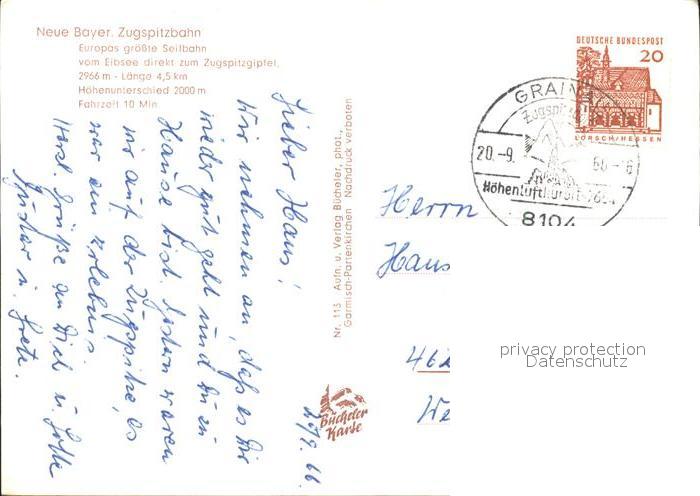 Neue Bayer. Zugspitzbahn
Europas größte Seilbahn
vom Eibsee direkt zum Zugspitzgipfel,
2966 m - Länge 4,5 km
Höhenunterschied 2000 m
Fahrzeit 10 Min.
Lieber Hans!
Wir nehmen an, daß es Dir
wieder gut geht und Du zu
Hause bist. Gestern waren
wir auf der Zugspitze, es
war ein Erlebnis.
Herzl. Grüße an Dich u. Lotte
Gustav u. Grete.
27/9. 66
Nr. 115 Aufn. u. Verlag Bücheler, phot.,
Garmisch-Partenkirchen Nachdruck verboten
Bücheler
Karte
DEUTSCHE BUNDESPOST
20
LORSCH/HESSEN
GRAINAU
20.-9.
Höhenluftkurort
8104
Herrn
Hans
462
We
privacy protection
Datenschutz